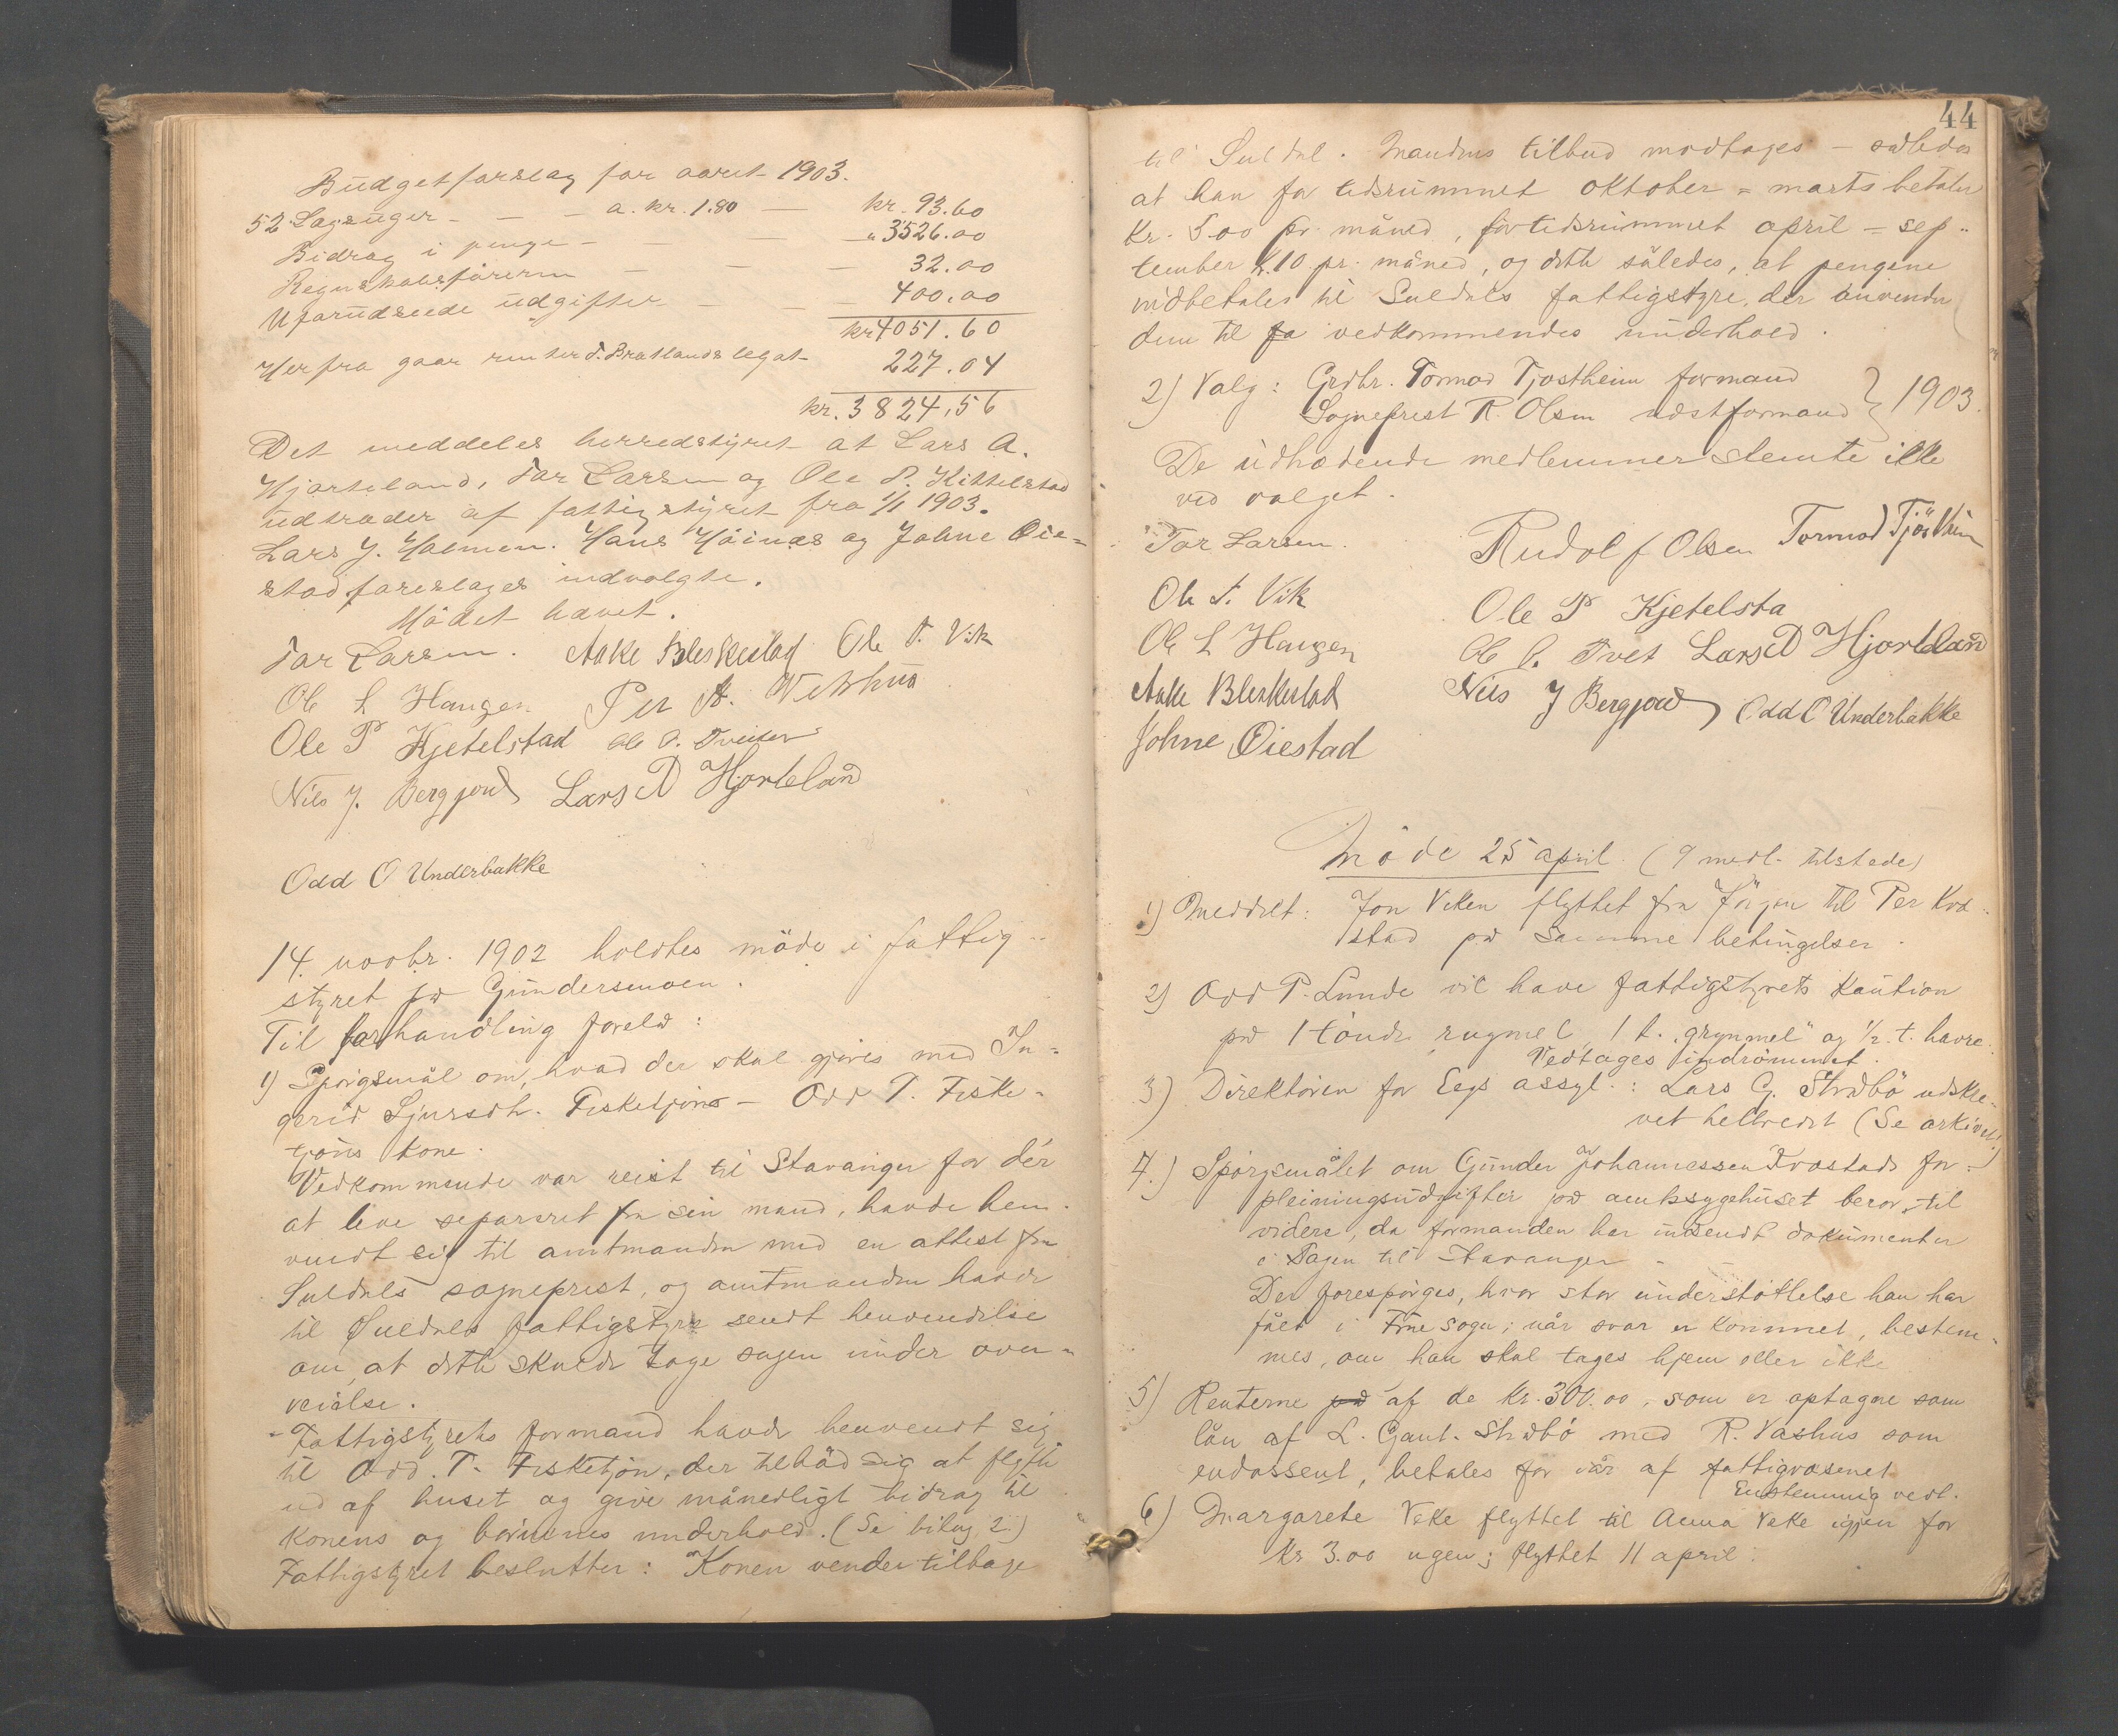 Budgetforslag for aaret 1903.
52 Lægsuger - - - a. kr. 1.80 - kr. 93.60
Bidrag i penge - - - " 3526.00
Regnskabsføreren - - - 32.00
Uforudseede udgifter - - - 400.00
kr 4051.60
Herfra gaar renter d. Bratlands legat 227.04
kr. 3824,56
Det meddeles herredstyret at Lars A.
Hjorteland, Tor Larsen og Ole P. Kittelstad
udtræder af fattigstyret fra 1/1 1903.
Lars J. Holmen. Hans Høinæs og Johne Øie=
stad foreslages indvalgte.
Mødet hævet.
Tor Larsen. Aake Bleskestad Ole T. Vik
Ole L Haugen Per A. Vetrhus
Ole P Kjetelstad Ole O. Tveiten
Nils J. Bergjord Lars D Hjorteland
Odd O Underbakke
14. novbr. 1902 holdtes möde i fattig-
styret på Gundersmoen.
Til forhandling forelå:
1) Spörgsmål om, hvad der skal gjöres med In=
gerid Sjursdt. Fisketjöns - Odd T. Fiske-
tjöns kone.
Vedkommende var reist til Stavanger for dér
at leve separeret fra sin mand, havde hen-
vendt sig til amtmanden med en attest fra
Suldals sogneprest, og amtmanden havde
til Suldals fattigstyre sendt henvendelse
om, at dette skulde tage sagen under over-
veielse.
- Fattigstyrets formand havde henvendt sig
til Odd. T. Fisketjön, der tilböd sig at flytte
ud af huset og give månedligt bidrag til
konens og börnenes underhold. (Se bilag 2.)
Fattigstyret beslutter: Konen vender tilbage
44
til Suldal. Mandens tilbud modtages - således
at han for tidsrummet oktober = marts betaler
Kr. 5.00 pr. måned, for tidsrummet april = sep-
tember k. 10 pr. måned, og dette således, at pengene
indbetales til Suldals fattigstyre, der anvender
dem til fa vedkommendes underhold.
2) Valg: Grdbr. Tormod Tjostheim formand
Sogneprest R. Olsen næstformand } 1903.
De udtrædende medlemmer stemte ikke
ved valget.
Tor Larsen. Rudolf Olsen Tormod Tjöstheim
Ole T. Vik Ole P Kjetelsta
Ole L Haugen Ole O. Tvet Lars D Hjorteland
Aake Bleskestad Nils J Bergjord Odd O Underbakke
Johne Øiestad
Möde 25 april. (9 medl. tilstede)
1) Meddelt: Jon Veken flyttet fra Jörgen til Per Kvæ-
stad på samme betingelser.
2) Odd P. Lunde vil have fattigstyrets kaution
på 1 tönde rugmel, 1 t. "grynmel" og 1/2 t. havre.
Vedtages indrömmet.
3) Direktören for Eegs assyl.: Lars G. Stråbö udskre-
vet helbredet (Se arkivet!)
4.) Spörgsmålet om Gunder Johannessen Kvæstads for=
pleiningsudgifter på amtssygehuset beror til
videre, da formanden har indsendt dokumenter
i sagen til Stavanger -
Der forespörges, hvor stor understöttelse han har
fået i Fine sogn; når svar er kommet, bestem-
mes, om han skal tages hjem eller ikke
5) Renterne på af de kr. 300.00, som er optagne som
lån af L. Gaut. Stråbö med R. Vashus som
endossent, betales for iår af fattigvæsenet
Enstemmig vedt.
6) Margarete Veke flyttet til Anna Veke igjen for
kr 3.00 ugen; flyttet 11 april.